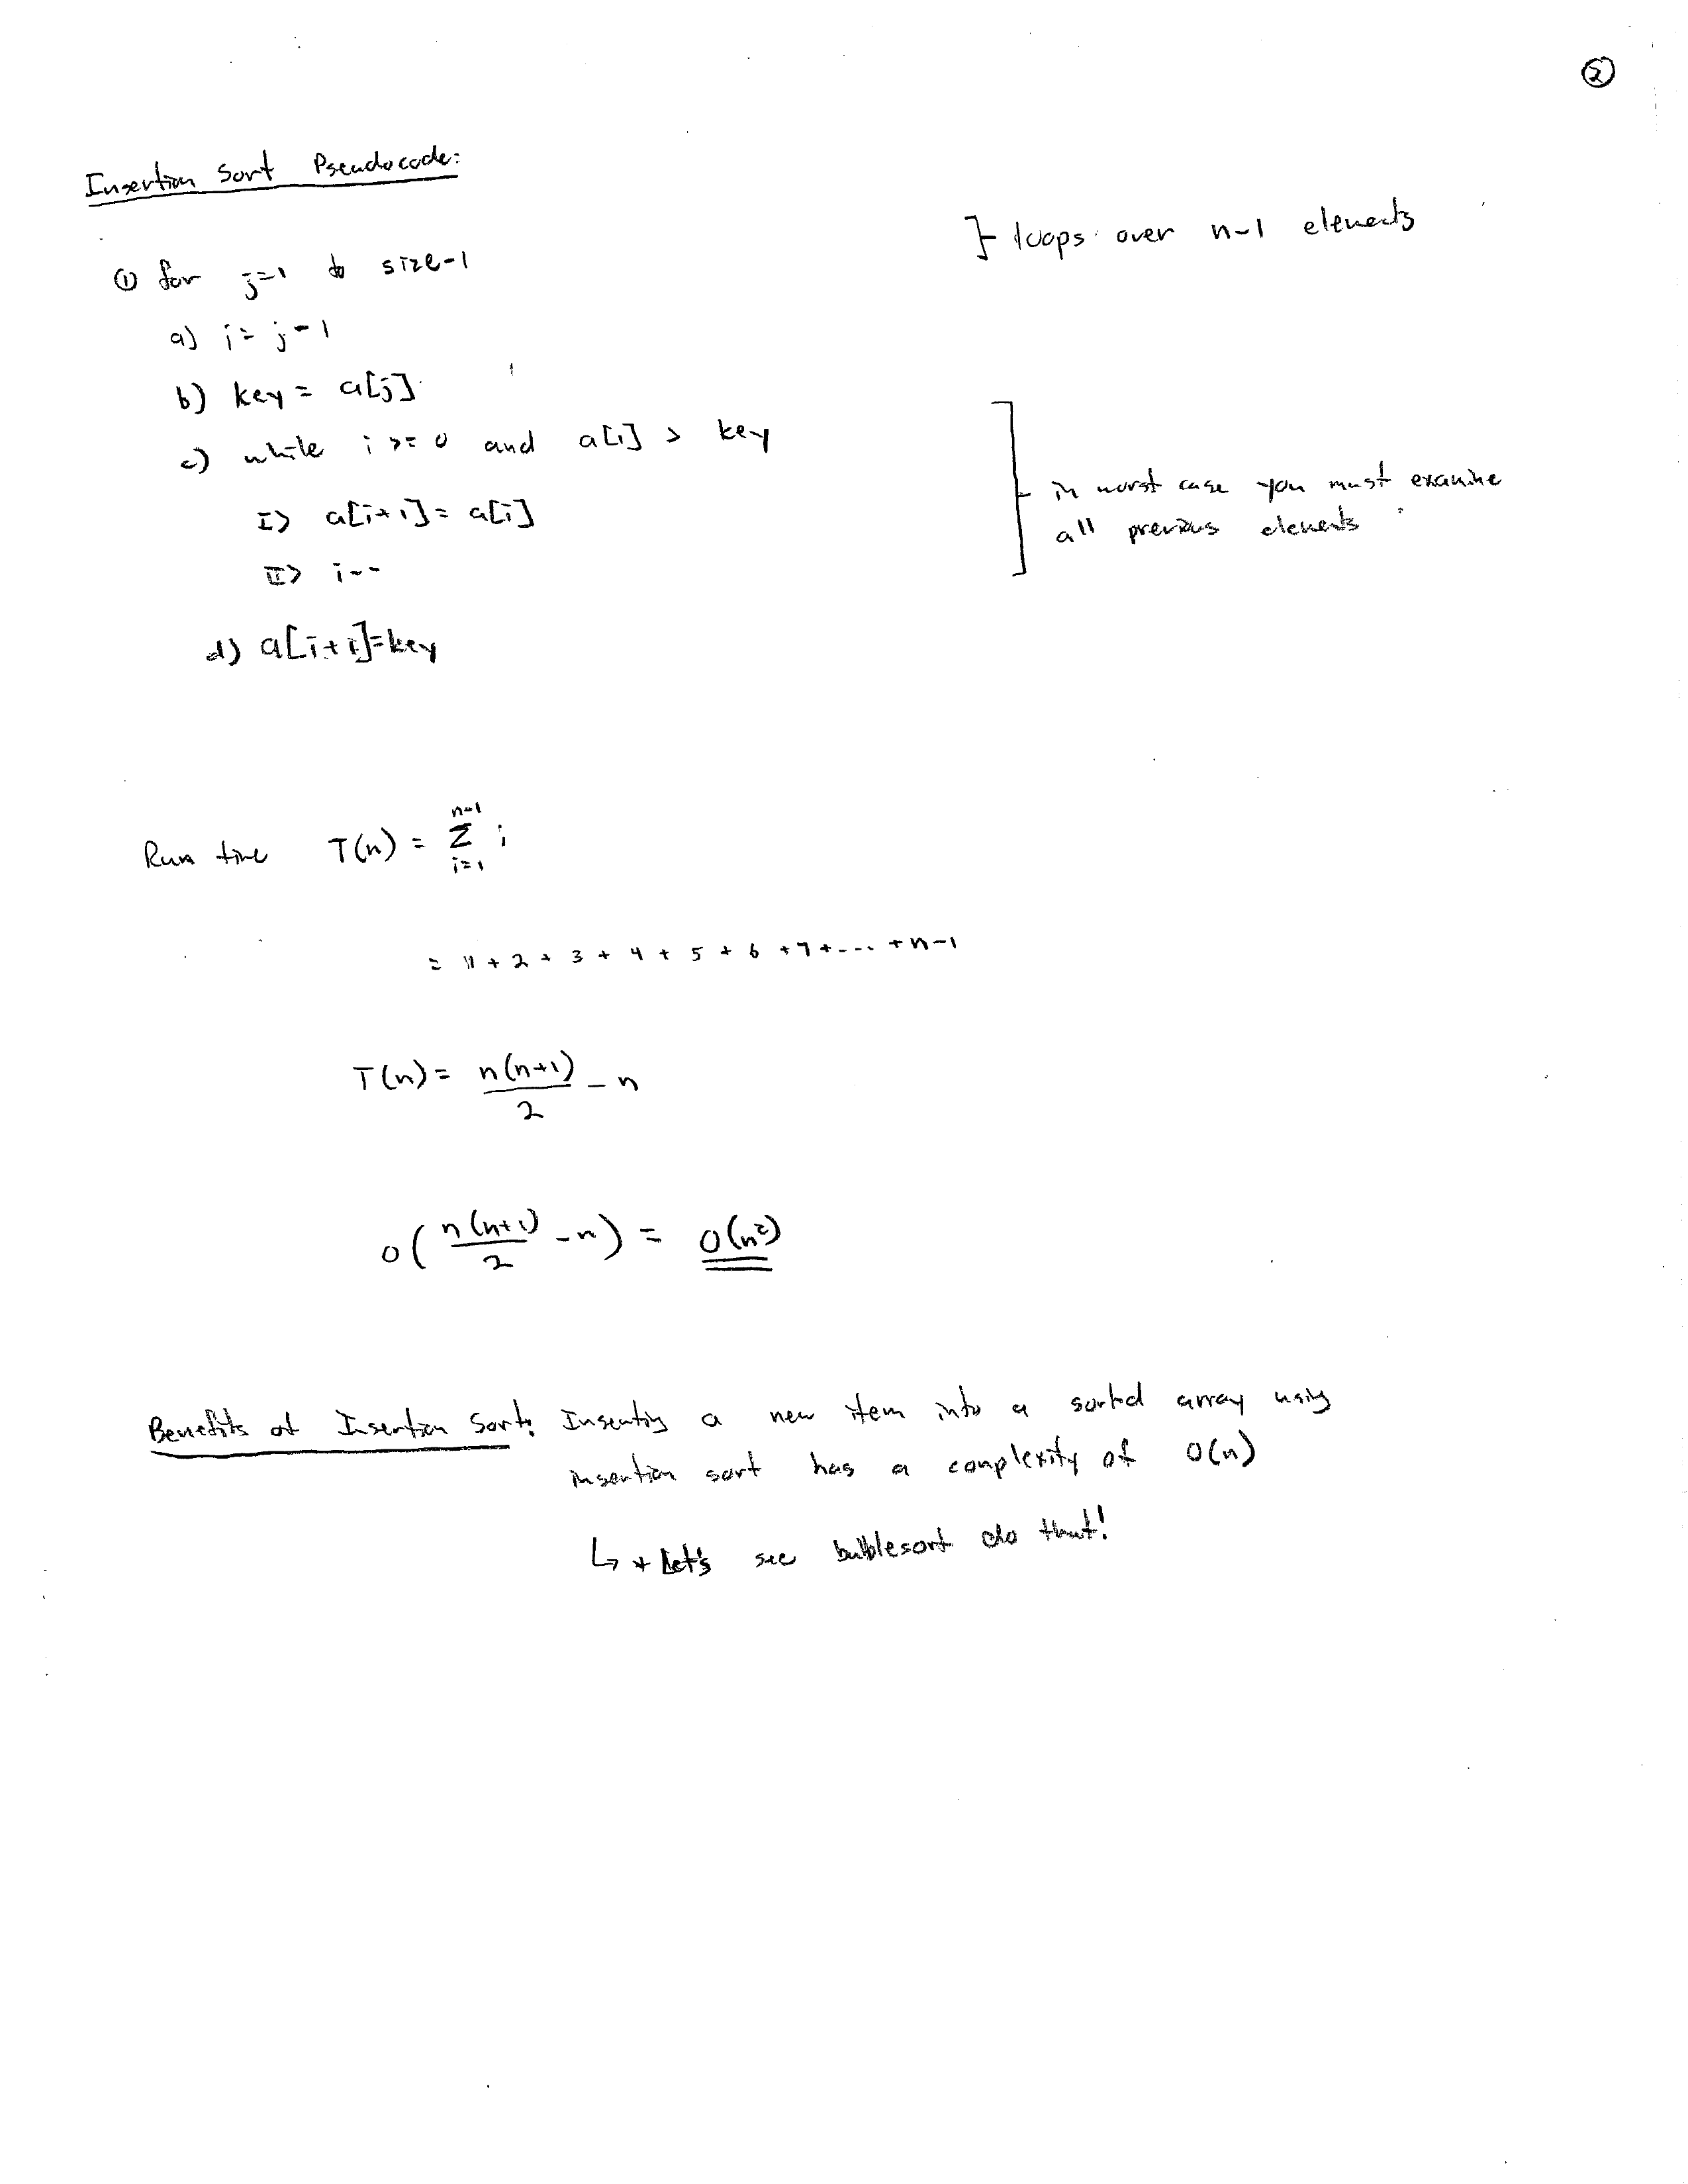 ②
Insertion Sort Pseudocode:
} loops over n-1 elements
① for j=1 to size-1
a) i= j-1
b) key = a[j]
c) while i >= 0 and a[i] > key
in worst case you must examine
all previous elements
I> a[i+1] = a[i]
II> i--
d) a[i+1]=key
Run time T(n) = Σ_{i=1}^{n-1} i
= 1 + 2 + 3 + 4 + 5 + 6 + 7 + ---- + n-1
T(n) = n(n+1)/2 - n
O( n(n+1)/2 - n ) = O(n²)
Benefits of Insertion Sort: Inserting a new item into a sorted array using
insertion sort has a complexity of O(n)
↳ * Let's see bubblesort do that!